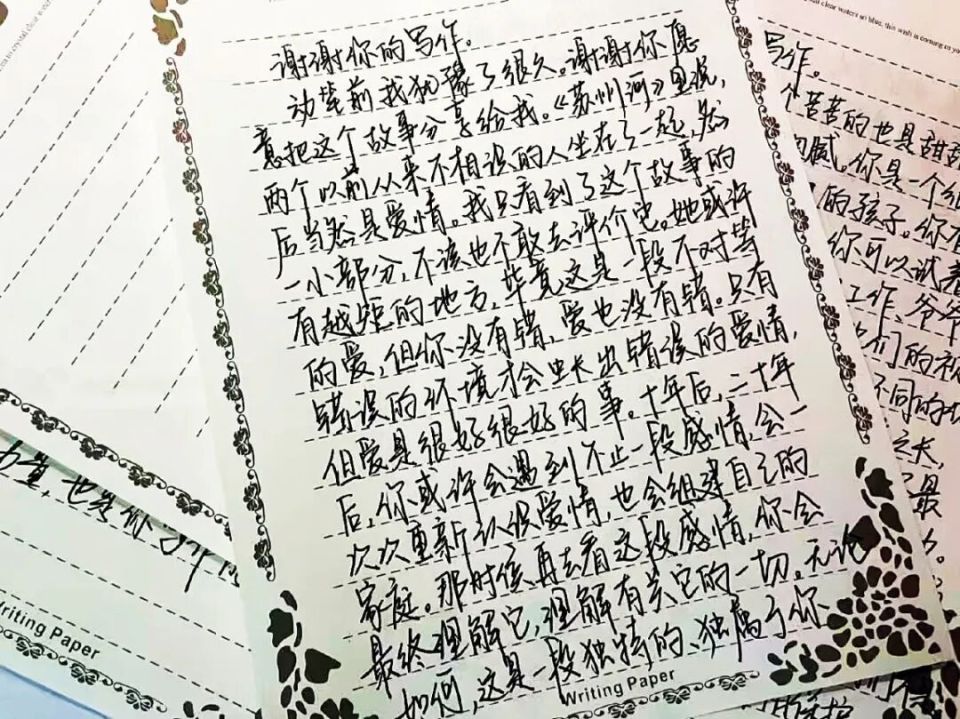 谢谢你的写作。
动笔前我犹豫了很久。谢谢你愿
意把这个故事分享给我。《苏州河》里说，
两个以前从来不相识的人坐在了一起，然
后当然是爱情。我只看到了这个故事的
一小部分，不该也不敢去评价它。她或许
有越矩的地方，毕竟这是一段不对等
的爱，但你没有错，爱也没有错。只有
错误的环境才会生长出错误的爱情，
但爱是很好很好的事。十年后，二十年
后，你或许会遇到不止一段感情，会一
次次重新认识爱情，也会组建自己的
家庭。那时候再去看这段感情，你会
最终理解它，理解有关它的一切。无论
如何，这是一段独特的、独属于你
Writing Paper
写作。
个苦苦的也是甜甜
你是一个细
的孩子。你有
你可以试着
工作、爷爷
们的视
不同的
之长，
最
也
Writing Paper